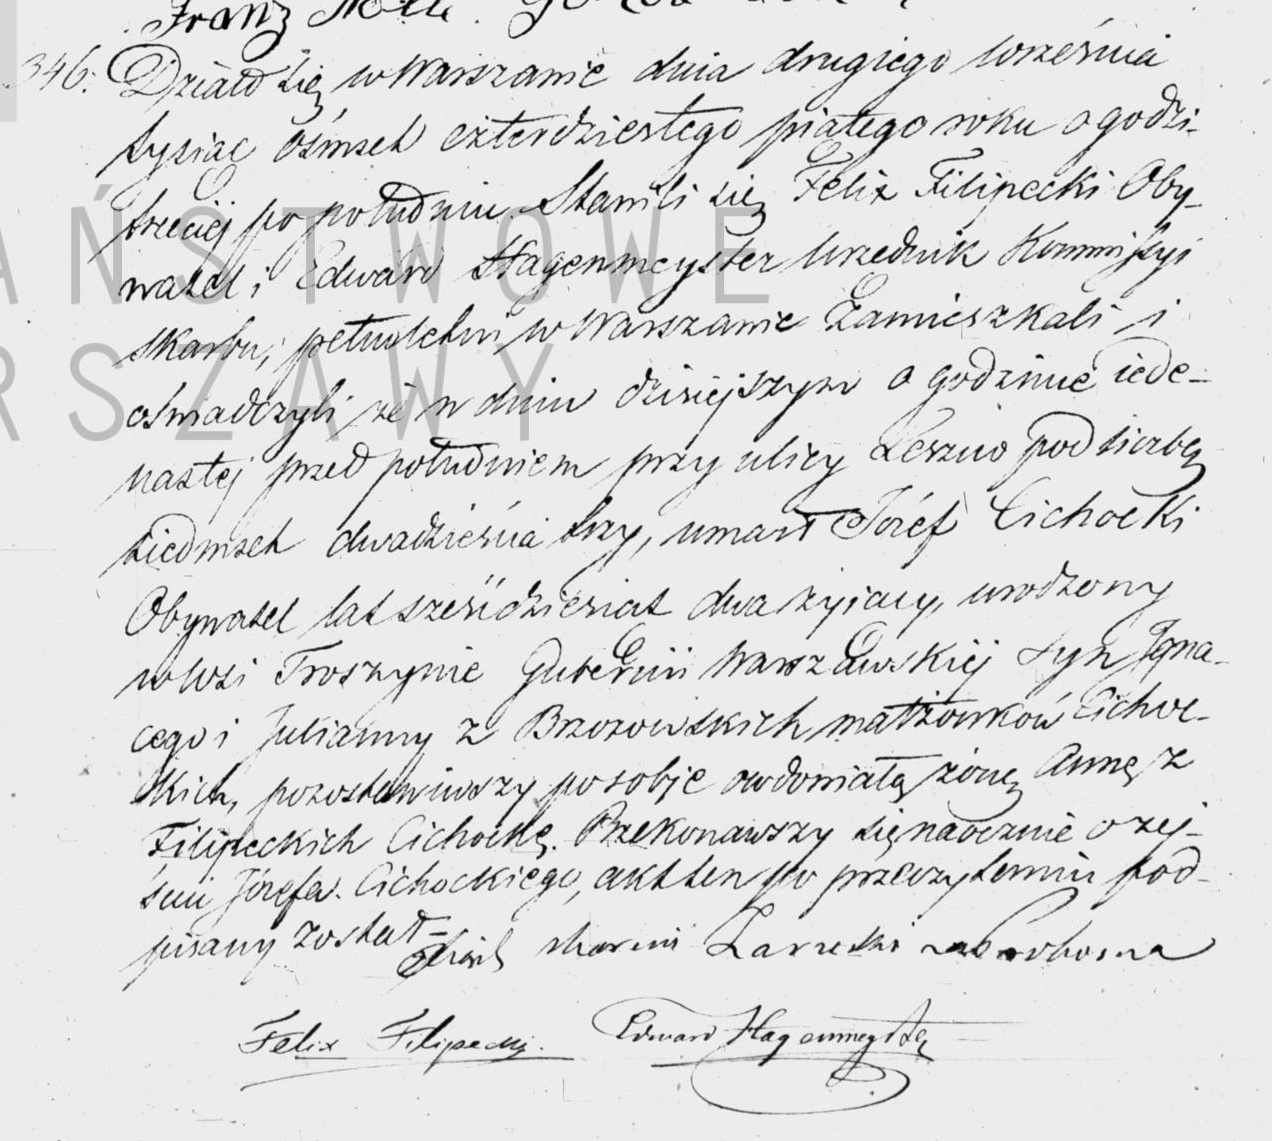 Franz
346. Działo się w Warszawie dnia drugiego Września
tysiąc ośmset czterdziestego piątego roku o godzi-
trzeciej po południu. Stawili się Felix Filipecki Oby-
watel i Edward Hagenmeyster Urzędnik Kommissyi
skarbu, pełnoletni w Warszawie Zamieszkali i
oświadczyli, że w dniu dzisiejszym o godzinie iede-
nastej przed południem przy ulicy Leszno pod liczbą
siedmset dwadzieścia trzy, umarł Józef Cichocki
Obywatel lat sześćdziesiąt dwa żyjący, urodzony
w Wsi Troszynie Gubernii Warszawskiej syn Igna-
cego i Julianny z Brzozowskich małżonków Cichoc-
kich, pozostawiwszy po sobie owdowiałą żonę Annę z
Filipeckich Cichocką. Przekonawszy się naocznie o zej-
ściu Józefa Cichockiego, akt ten po przeczytaniu pod-
pisany został
Felix Filipecki. Edward Hagenmeyster
PAŃSTWOWE
WARSZAWY